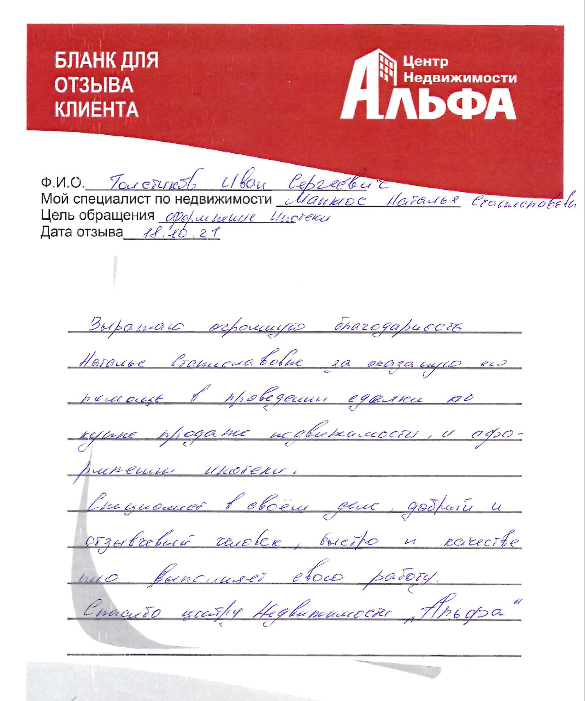 БЛАНК ДЛЯ
ОТЗЫВА
КЛИЕНТА
Центр
Недвижимости
АЛЬФА
Ф.И.О. Иван Сергеевич
Мой специалист по недвижимости Наталья Станиславовна
Цель обращения оформление ипотеки
Дата отзыва 18.10.21
Выражаю огромную благодарность
Наталье Станиславовне за оказаную ею
помощь в проведении сделки по
купле продаже недвижимости, и офо-
рмлении ипотеки.
Специалист в своём деле, добрый и
отзывчевый человек, быстро и качестве
нно выполняет свою работу.
Спасибо центру Недвижимости „Альфа"